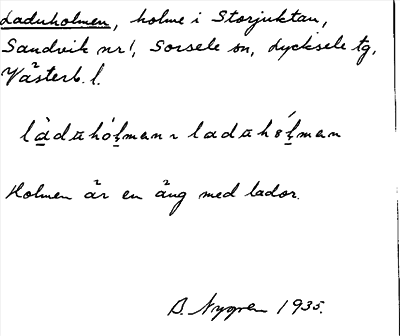 Laduholmen, holme i Storjuktan,
Sandvik nr 1, Sorsele sn, Lycksele tg,
Västerb. l.
làdαhó̢lman ~ ladαhó̢lman
Holmen är en äng med lador.
B. Nygren 1935.